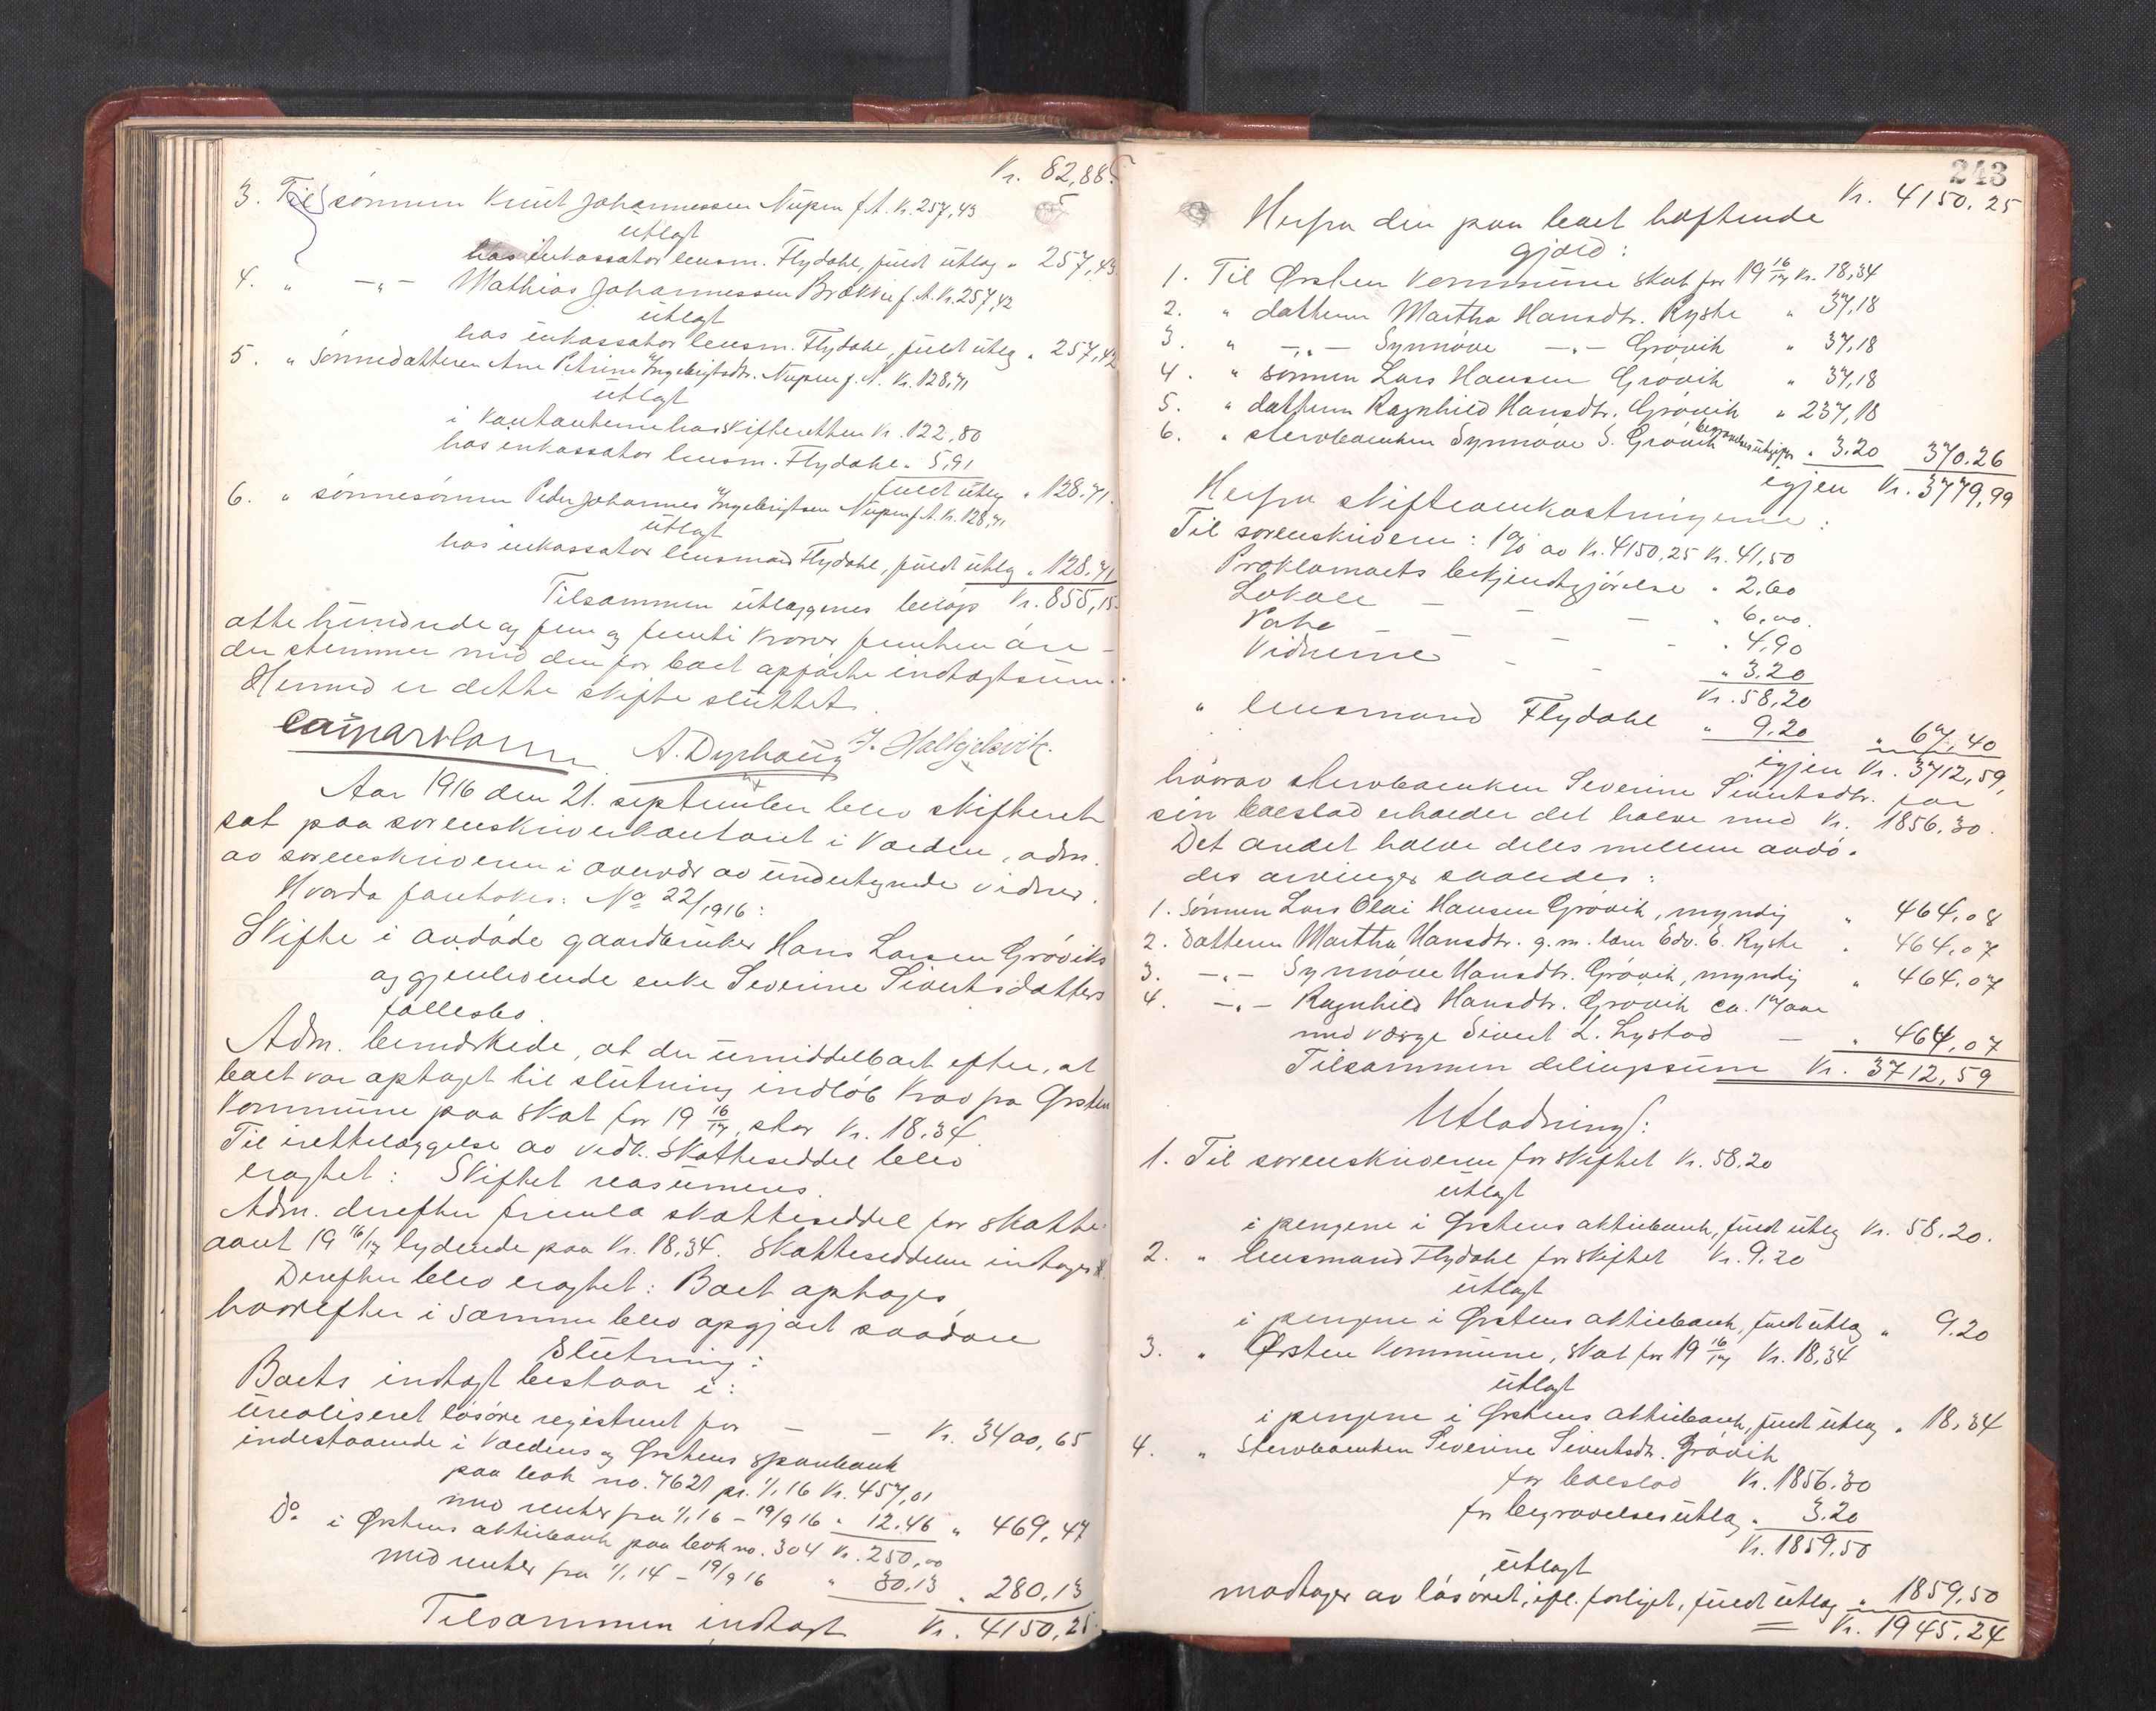 Kr. 82,88
3. Til sönnen Knut Johannessen Nupen f. A. Kr. 257,43
utlagt
hos inkassator lensm. Flydahl, fuldt utlæg " 257,43
4. " -"- Mathias Johannessen Brekke f. A. Kr. 257,42
utlagt
hos inkassator lensm. Flydahl, fuldt utlæg " 257,42
5. " sönnedatteren Ane Petrine Ingebrigtsdtr. Nupen f. A. Kr. 128,71
utlagt
i kontanterne hos skifteretten Kr. 122,80
hos inkassator lensm. Flydahl " 5,91
fuldt utlæg " 128,71
6. " sönnesönnen Peder Johannes Ingebrigtsen Nupen f. A. Kr. 128,71
utlagt
hos inkassator lensmand Flydahl, fuldt utlæg " 128,71
Tilsammen utlæggenes belöp Kr. 855,15
otte hundrede og fem og femti kroner femten öre -
der stemmer med den for boet opförte indtægtsum.
Hermed er dette skifte sluttet.
A. Dyrhaug J. Halkjelsvik.
Aar 1916 den 21. september blev skifteret
sat paa sorenskriverkontoret i Volden, adm.
av sorenskriveren i overvær av undertegnede vidner.
Hvorda foretokes: No 22/1916:
Skifte i avdöde gaardbruker Hans Larsen Gröviks
og gjenlevende enke Severine Sivertsdatters
fællesbo.
Adm. bemerkede, at der umiddelbart efter, at
boet var optaget til slutning indlöb krav fra Örsten
kommune paa skat for 19 16/17, stor Kr. 18.34.
Til irettelæggelse av vedk. skatteseddel blev
eragtet: Skiftet reasumeres.
Adm. derefter fremla skatteseddel for skatte-
aaret 19 16/17 lydende paa Kr. 18,34. Skatteseddelen indtages #.
Derefter blev eragtet: Boet optages,
hvorefter i samme blev opgjort saadan
Slutning:
Boets indtægt bestaar i:
urealiseret lösöre registreret for - - Kr. 3400,65
indestaaende i Voldens og Örstens sparebank
paa bok no. 7621 pr. 1/1 16 Kr. 457,01
med renter fra 1/1 16 - 19/9 16 " 12.46 " 469,47
do i Örstens aktiebank paa bok no. 304 Kr. 250,00
med renter fra 1/1 14 - 19/9 16 " 30,13 " 280,13
Tilsammen indtægt Kr. 4150,25
243
Kr. 4150.25
Herfra den paa boet heftende
gjæld:
1. Til Örsten kommune skat for 19 16/17 Kr. 18,34
2. " datteren Martha Hansdtr. Ryste " 37,18
3. " -"- Synnöve -"- Grövik " 37,18
4. " sönnen Lars Hansen Grövik " 37,18
5. " datteren Ragnhild Hansdtr. Grövik " 237,18
6. " stervboenken Synnöve S. Grövik begravelsesutgifter " 3.20 370.26
igjen Kr. 3779,99
Herfra skifteomkostningerne:
Til sorenskriveren: 1% av Kr. 4150,25 Kr. 41,50
Proklamaets bekjendtgjörelse " 2,60
Lokale - - - " 6,00.
Porto - - - " 4,90
Vidnerne - - " 3,20
Kr. 58,20
" lensmand Flydahl " 9,20 " 67,40
igjen Kr. 3712,59,
hvorav stervboenken Severine Sivertsdtr. for
sin boeslod erholder det halve med Kr. 1856,30.
Det andet halve deles mellem avdö-
des arvinger saaledes:
1. Sönnen Lars Olai Hansen Grövik, myndig " 464,08
2. Datteren Martha Hansdtr. g. m. lærer Edv. E. Ryste " 464,07
3. -"- Synnöve Hansdtr. Grövik, myndig " 464,07
4. -"- Ragnhild Hansdtr. Grövik ca. 17 aar
med værge Sivert L. Lystad - " 464,07
Tilsammen delingssum Kr. 3712,59
Utlodning:
1. Til sorenskriveren for skiftet Kr. 58.20
utlagt
i pengene i Örstens aktiebank, fuldt utlæg Kr. 58.20.
2. " lensmand Flydahl for skiftet Kr. 9.20
utlagt
i pengene i Örstens aktiebank, fuldt utlæg " 9.20
3. " Örsten kommune, skat for 19 16/17 Kr. 18,34
utlagt
i pengene i Örstens aktiebank, fuldt utlæg " 18,34
4. " Stervboenken Severine Sivertsdtr. Grövik
for boeslod Kr. 1856.30
for begravelsesutlæg " 3.20
Kr. 1859,50
utlagt
modtager av lösöret, ifl. forliget, fuldt utlæg " 1859,50
Kr. 1945.24